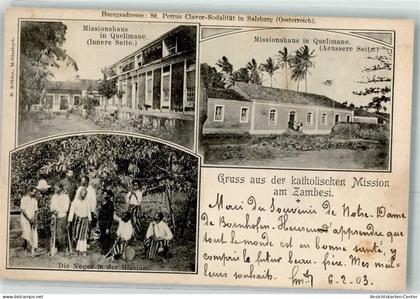 Bezugsadresse: St. Petrus Claver-Sodalität in Salzburg (Oesterreich).
Missionshaus in Quelimane.
(Innere Seite.)
Missionshaus in Quelimane.
(Aeussere Seite.)
Die Neger in der Mission.
Gruss aus der katholischen Mission
am Zambesi.
Merci du Souvenir de Notre-Dame
de Bornhofen. Heureuse d'apprendre que
tout le monde est en bonne santé, y
compris le futur beau frère. Mes meil-
leurs souhaits.
6-2-03
www.ansichtskarten-center.de